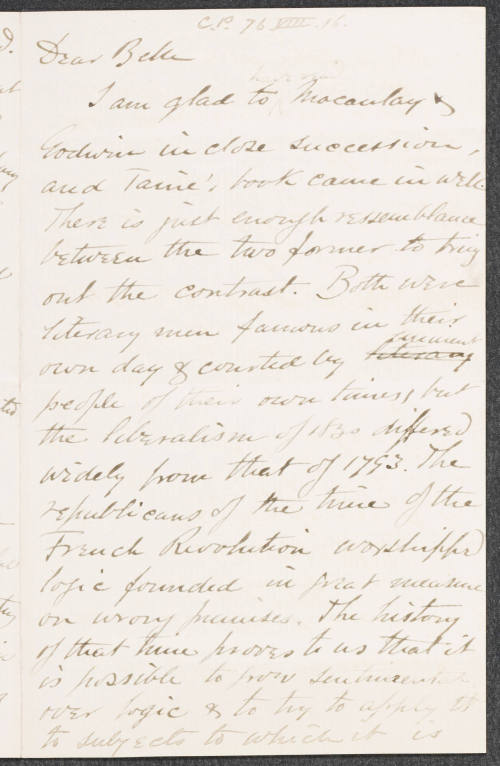 C.P. 76 VIII. 16.
Dear Belle
have read
I am glad to Macaulay &
Godwin in close succession,
and Taine's book came in well.
There is just enough ressemblance
between the two former to bring
out the contrast. Both were
literary men famous in their
eminent
own day & courted by literary
people of their own times, but
the liberalism of 1830 differed
widely from that of 1793. The
republicans of the time of the
French Revolution worshipped
logic founded in great measure
on wrong premises. The history
of that time proves to us that it
is possible to grow sentimental
over logic & to try to apply it
to subjects to which it is